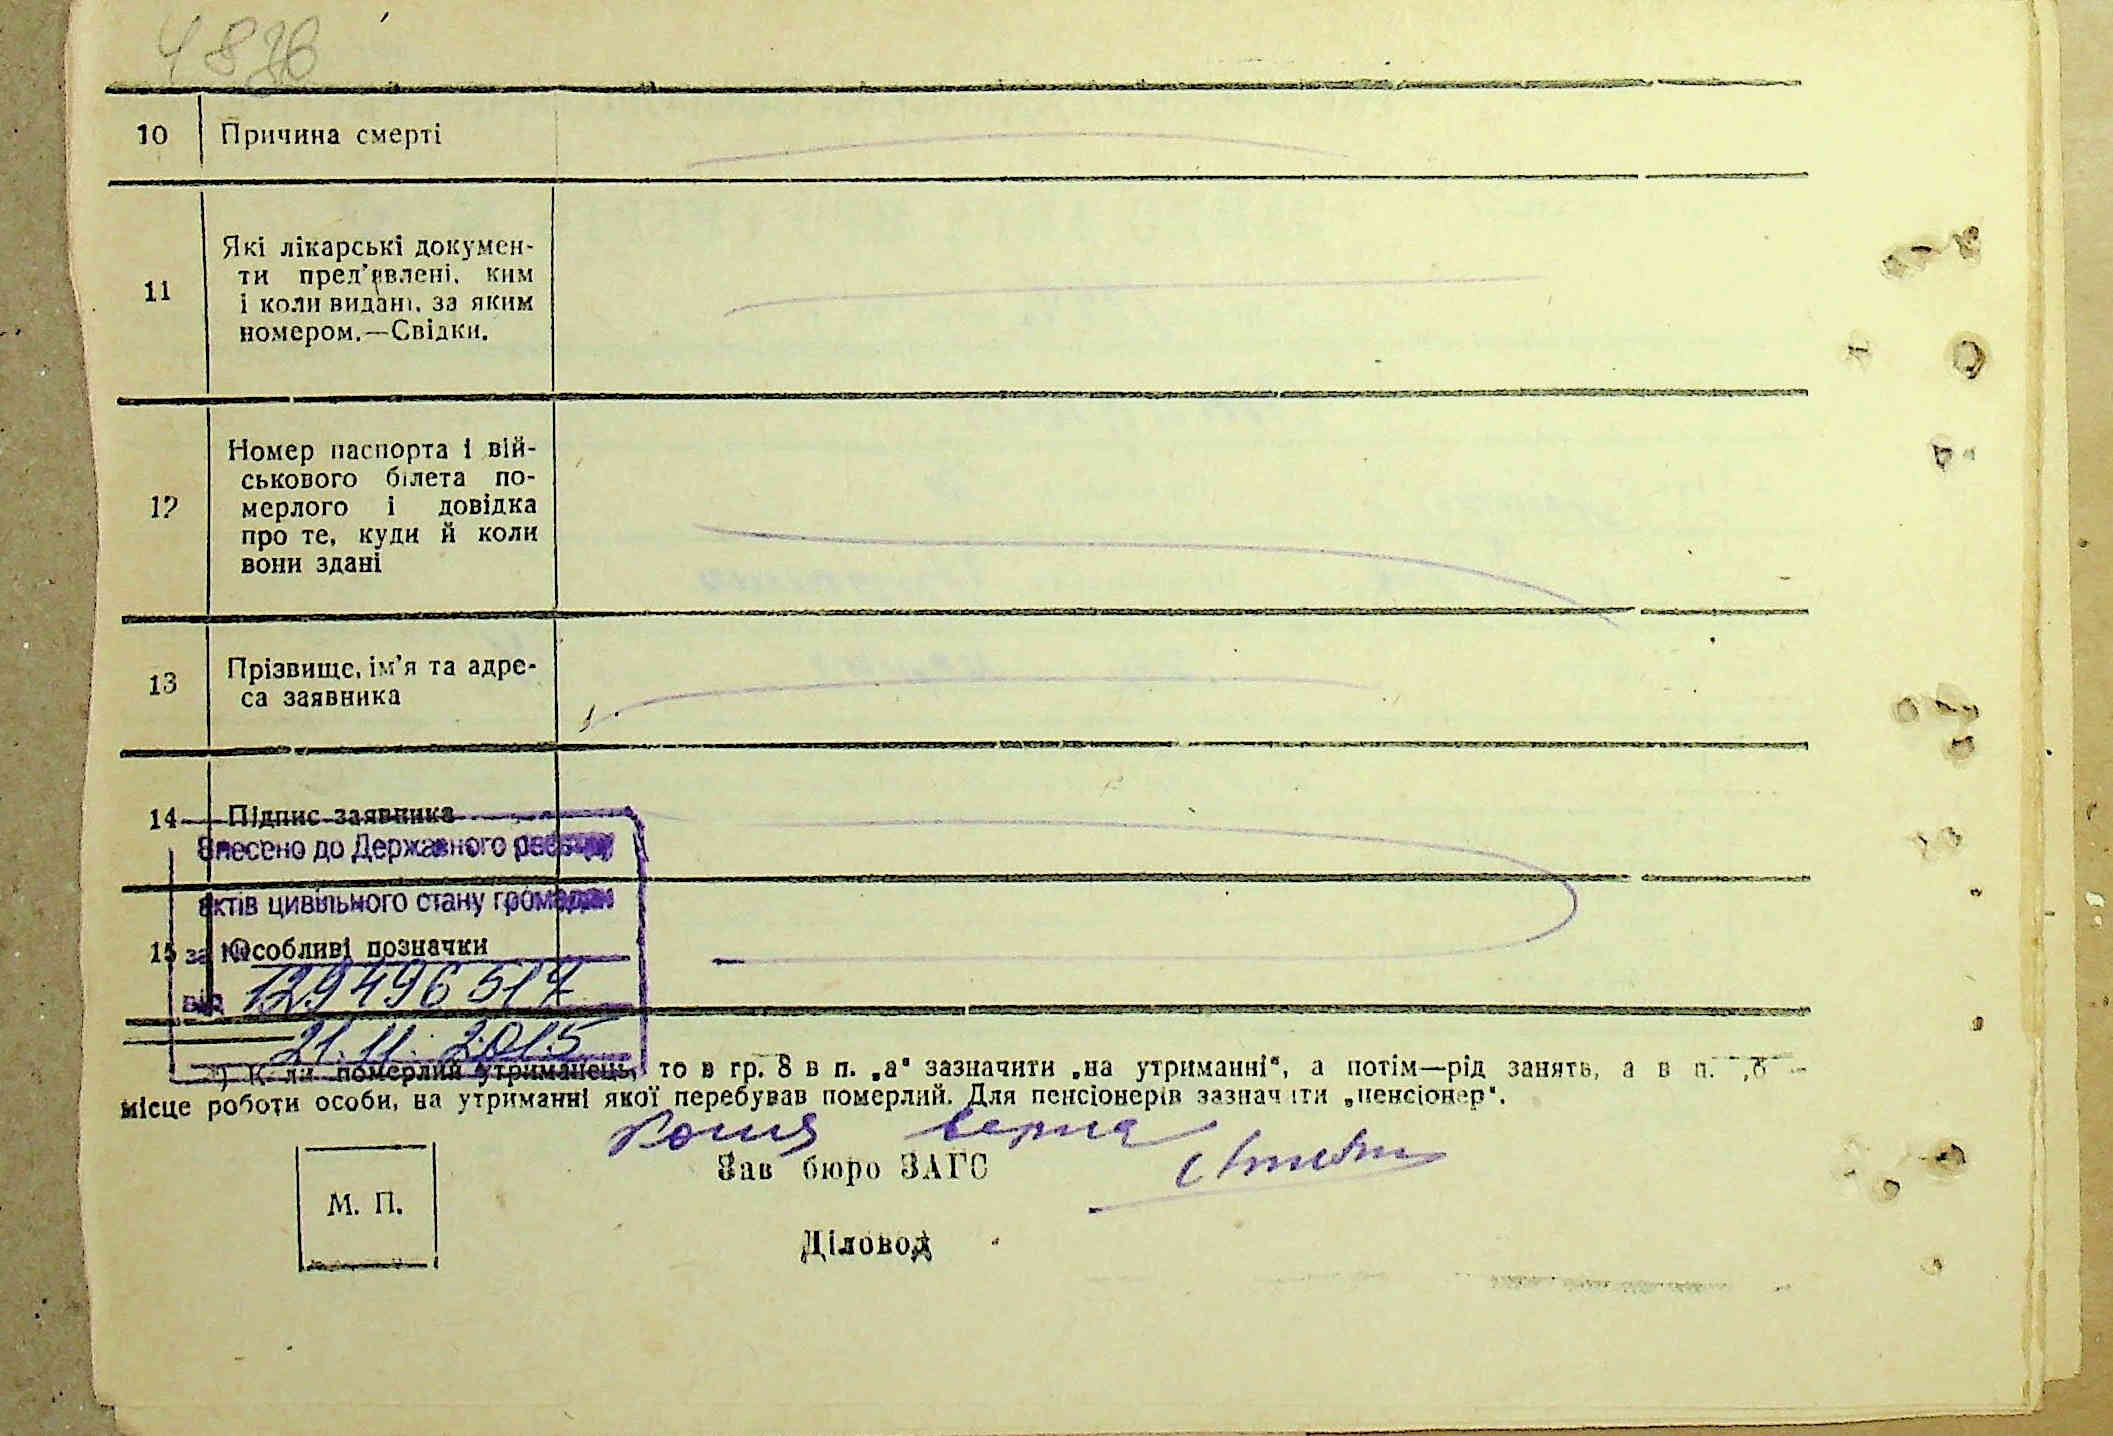 10 Причина смерті
11 Які лікарські докумен-
ти пред'явлені, ким
і коли видані, за яким
номером.—Свідки.
12 Номер паспорта і вій-
ськового білета по-
мерлого і довідка
про те, куди й коли
вони здані
13 Прізвище, ім'я та адре-
са заявника
14 Підпис заявника
Внесено до Державного реєстру
актів цивільного стану громадян
15 Особливі позначки
за №
129496517
від
21.11.2015
*) Коли померлий утриманець, то в гр. 8 в п. „а“ зазначити „на утриманні“, а потім—рід занять, а в п. „б“—
місце роботи особи, на утриманні якої перебував померлий. Для пенсіонерів зазначити „пенсіонер“.
Копия верна
Зав бюро ЗАГС
М. П.
Діловод